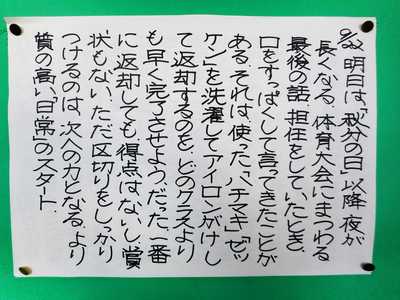 9/22 明日は､「秋分の日」以降､夜が
長くなる｡体育大会にまつわる
最後の話｡担任をしていたとき､
口をすっぱくして言ってきたことが
ある｡それは､使った､「ハチマキ」「ゼッ
ケン」を洗濯してアイロンがけし
て返却するのを､どのクラスより
も早く完了させよう､だった｡一番
に返却しても､得点はないし､賞
状もない｡ただ､区切りをしっかり
つけるのは､次への力となる｡より
質の高い､｢日常｣のスタート｡